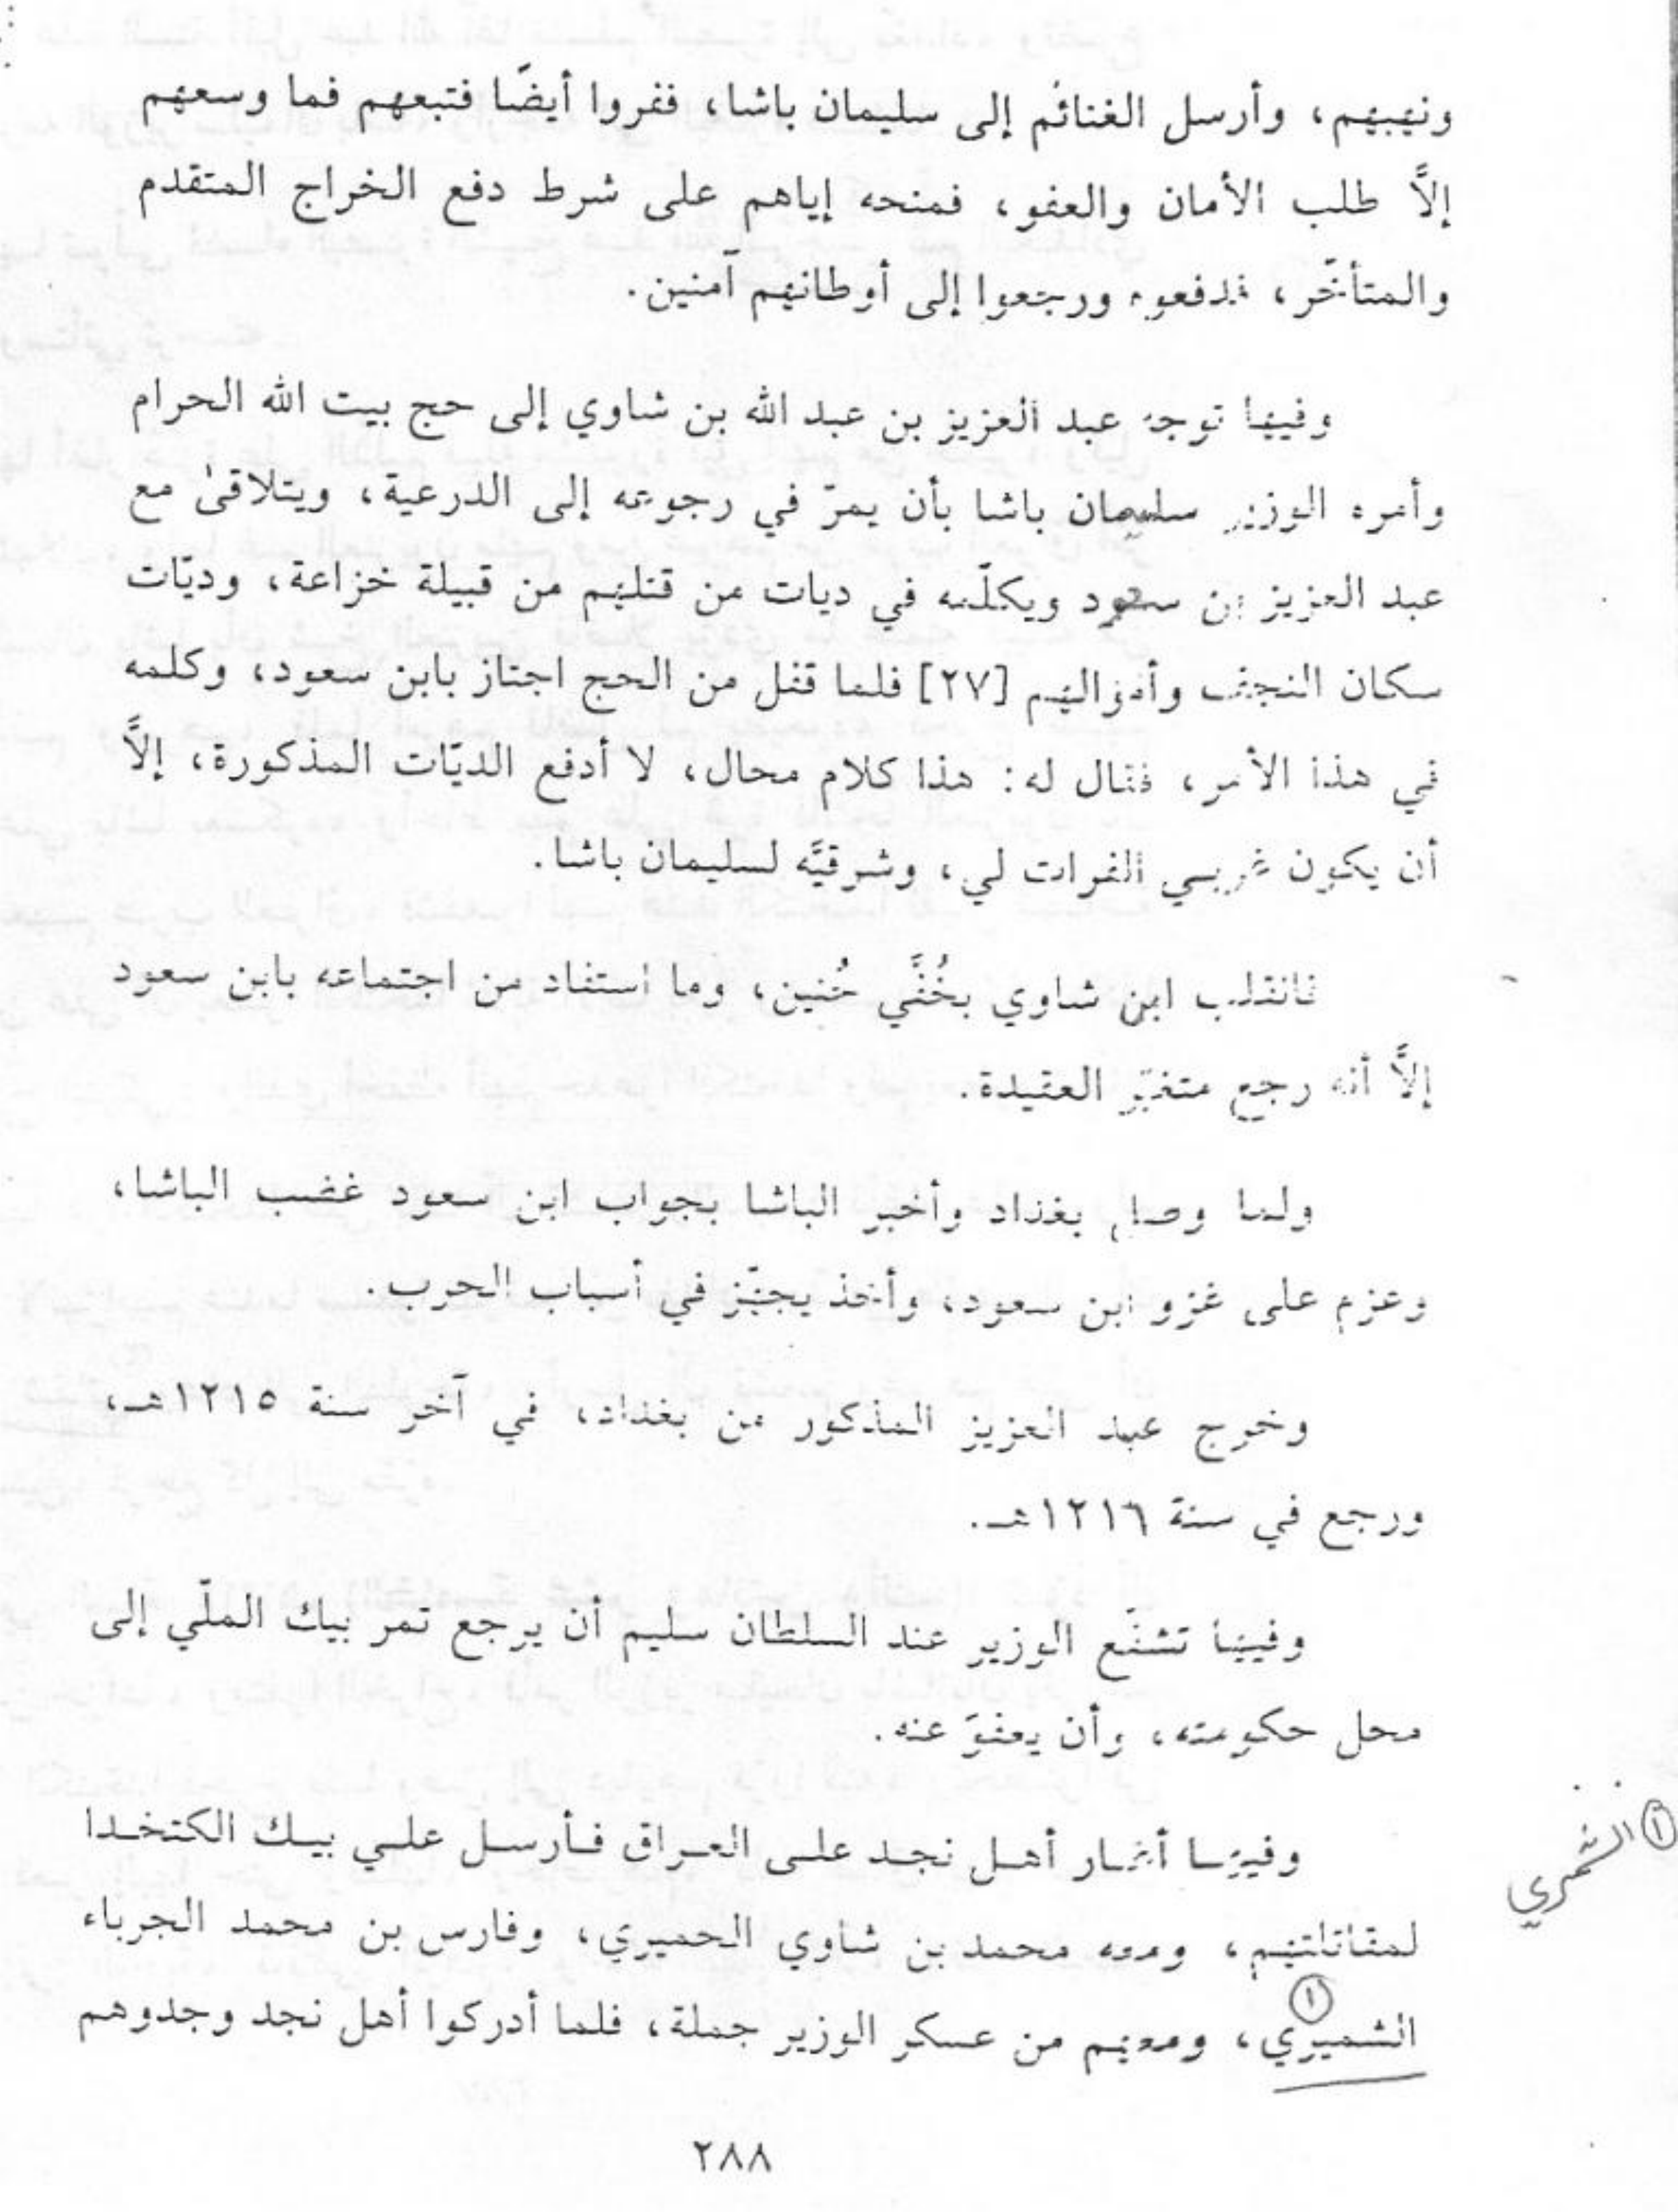 ونهبهم، وأرسل الغنائم إلى سليمان باشا، ففروا أيضًا فتبعهم فما وسعهم
إلاَّ طلب الأمان والعفو، فمنحه إياهم على شرط دفع الخراج المتقدم
والمتأخّر، فدفعوه ورجعوا إلى أوطانهم آمنين.
وفيها توجه عبد العزيز بن عبد الله بن شاوي إلى حج بيت الله الحرام
وأمره الوزير سليمان باشا بأن يمرّ في رجوعه إلى الدرعية، ويتلاقىٰ مع
عبد العزيز بن سعود ويكلّمه في ديات من قتلهم من قبيلة خزاعة، وديّات
سكان النجف وأموالهم [٢٧] فلما قفل من الحج اجتاز بابن سعود، وكلمه
في هذا الأمر، فقال له: هذا كلام محال، لا أدفع الديّات المذكورة، إلاَّ
أن يكون غربي الفرات لي، وشرقيَّه لسليمان باشا.
فانقلب ابن شاوي بخُفَّي حُنين، وما استفاد من اجتماعه بابن سعود
إلاَّ أنه رجع متغيّر العقيدة.
ولما وصل بغداد وأخبر الباشا بجواب ابن سعود غضب الباشا،
وعزم على غزو ابن سعود، وأخذ يجهّز في أسباب الحرب.
وخرج عبد العزيز المذكور من بغداد، في آخر سنة ١٢١٥هـ،
ورجع في سنة ١٢١٦هـ.
وفيها تشفّع الوزير عند السلطان سليم أن يرجع تمر بيك الملّي إلى
محل حكومته، وأن يعفوَ عنه.
وفيها أغار أهل نجد على العراق فأرسل علي بيك الكتخدا
لمقاتلتهم، ومعه محمد بن شاوي الحميري، وفارس بن محمد الجرباء
الشميري(١)، ومعهم من عسكر الوزير جملة، فلما أدركوا أهل نجد وجدوهم
(١) الشمري
٢٨٨